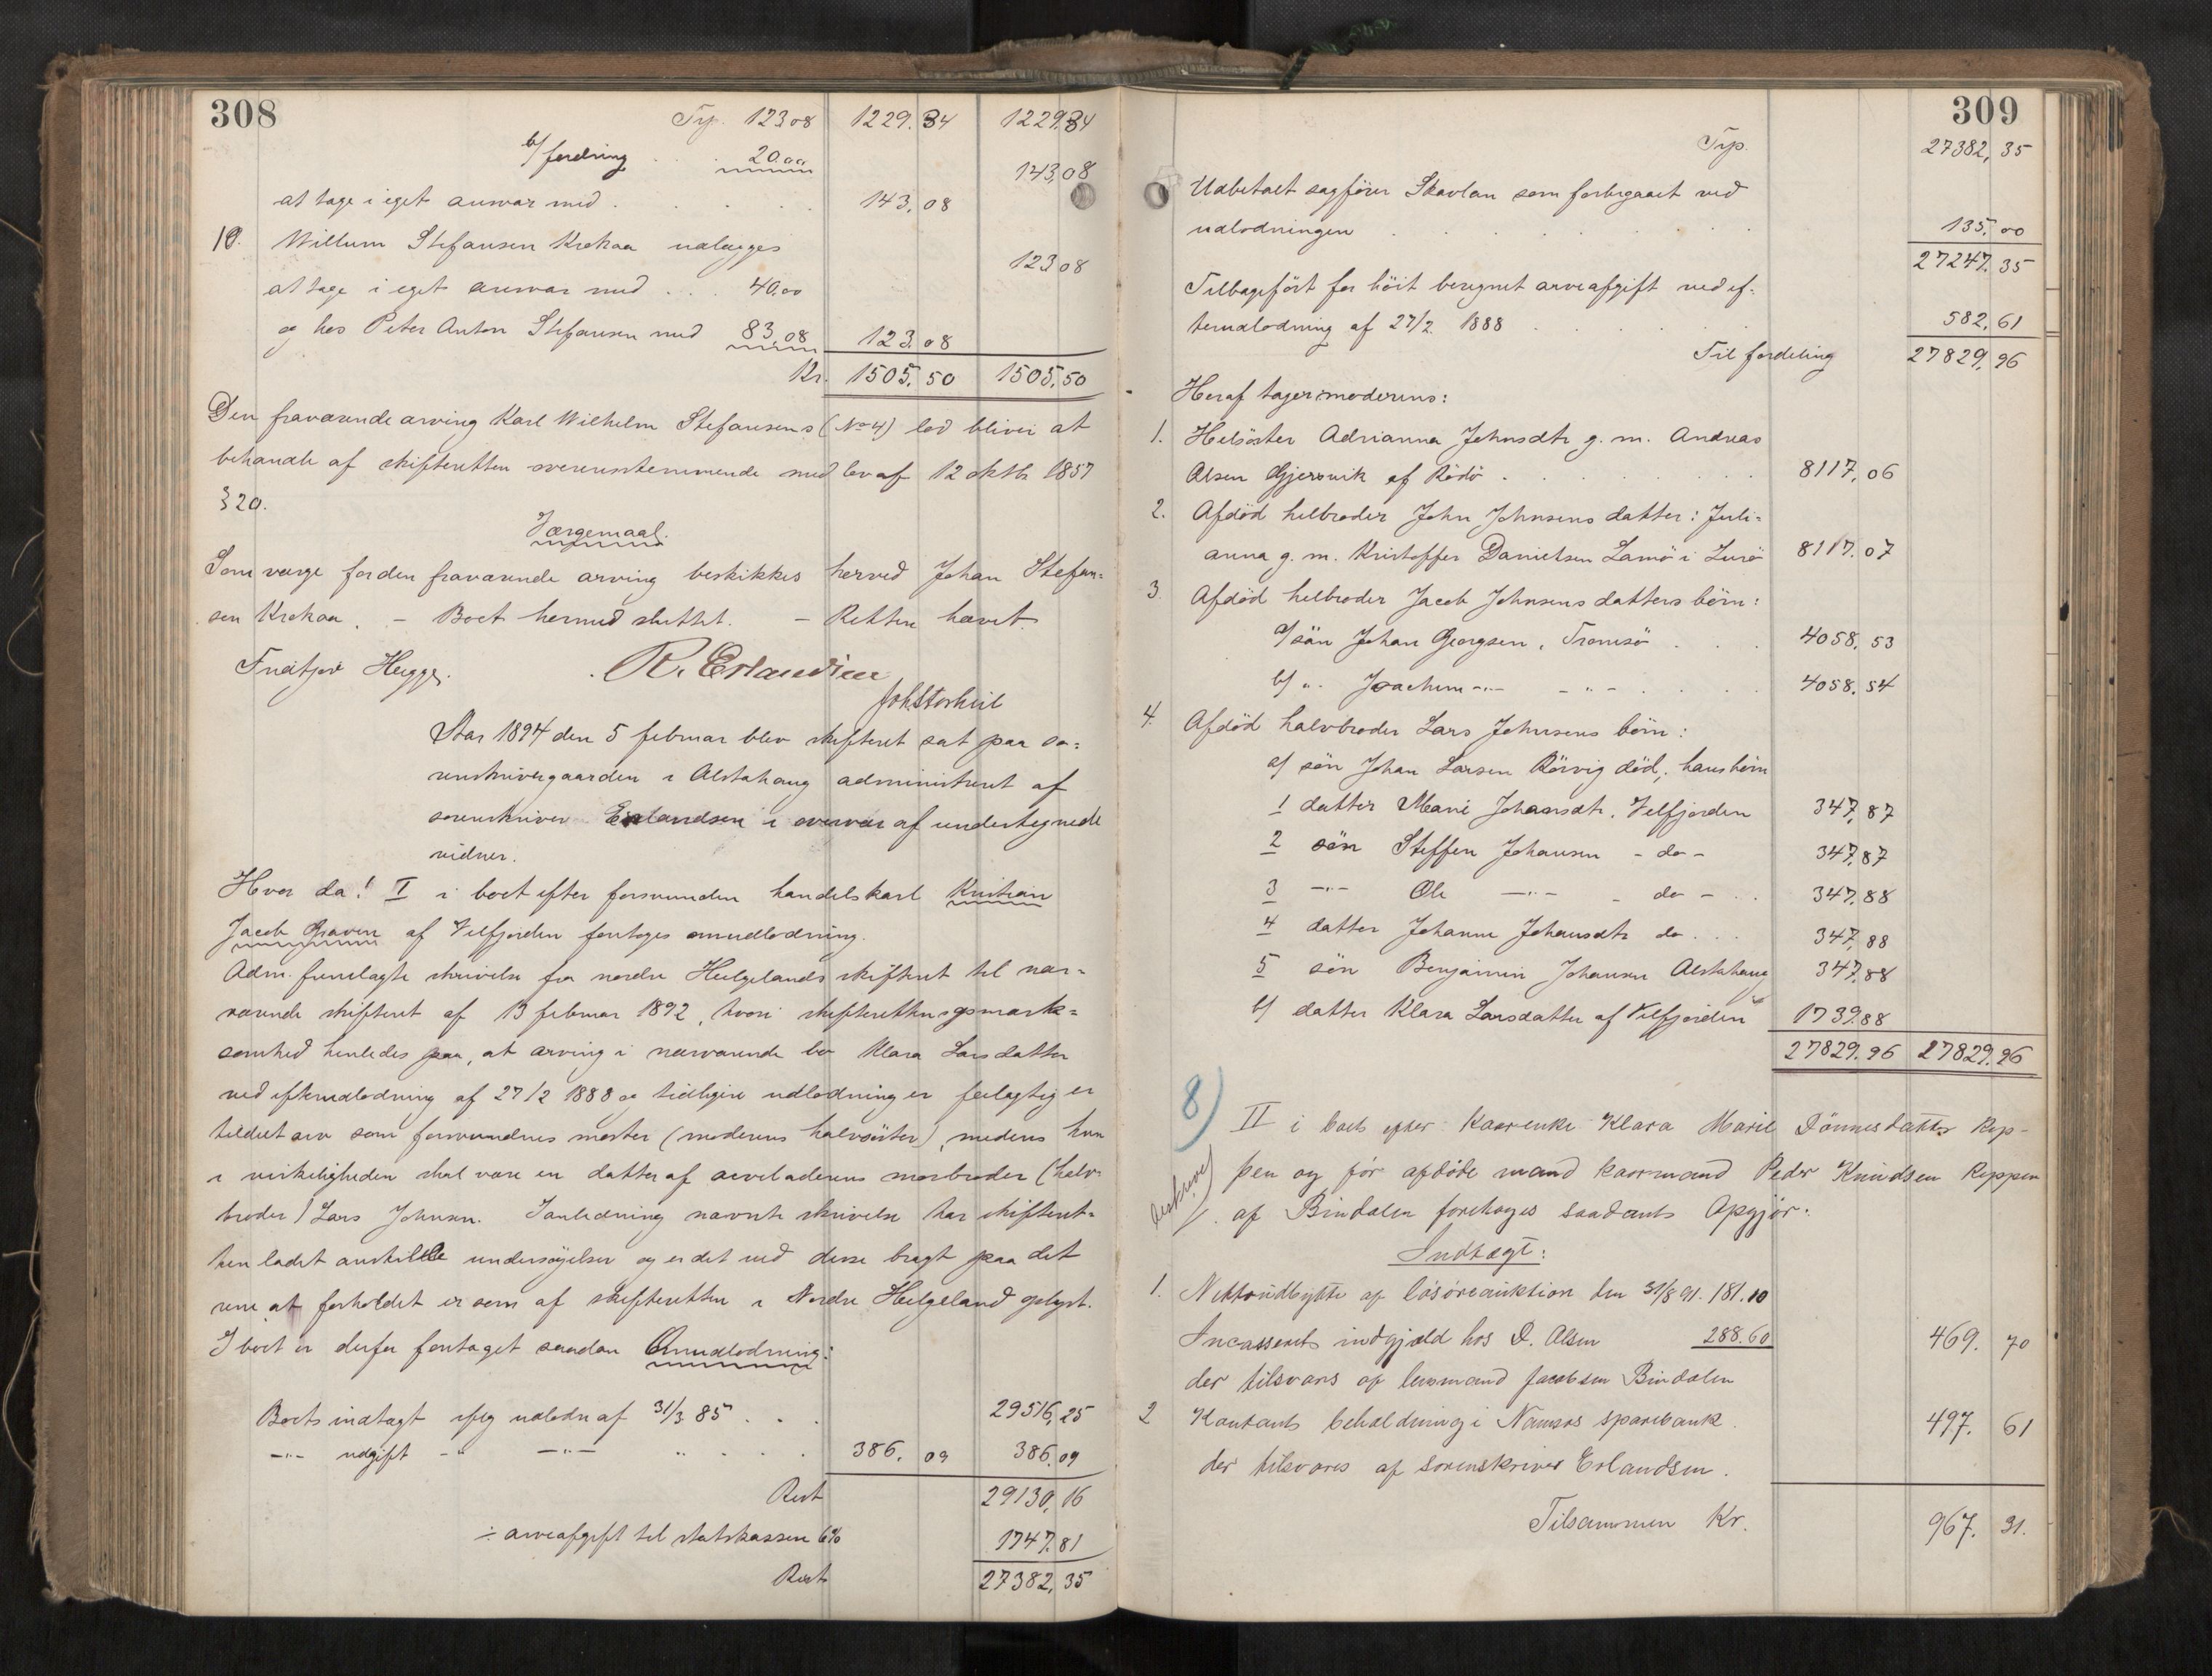 308
Trp. 123 08 1229.34 1229.34
b/ fordring . . . 20.00 143,08
at tage i eget ansvar med . . . . . 143,08
10. Willum Stefansen Krokaa udlægges 123 08
at tage i eget ansvar med . . . 40,00
og hos Peter Anton Stefansen med 83,08 123.08
Kr. 1505,50 1505,50
Den fraværende arving Karl Wilhelm Stefansens (No 4) lod bliver at
behandle af skifteretten overensstemmende med lov af 12 oktbr 1857
§ 20.
Værgemaal.
Som værge for den fraværende arving beskikkes herved Johan Stefan-
sen Krokaa. – Boet hermed sluttet. – Retten hævet.
Fridtjov Hegge. R. Erlandsen
Joh Storheil
Aar 1894 den 5 februar blev skifteret sat paa so-
renskrivergaarden i Alstahaug administreret af
sorenskriver Erlandsen i overvær af undertegnede
vidner.
Hvor da! I i boet efter forsvunden handelskarl Kristian
Jacob Graven af Velfjorden foretoges omudlodning.
Adm. fremlagte skrivelse fra nordre Helgelands skifteret til nær-
værende skifteret af 13 februar 1892, hvori skifterettens opmærk-
somhed henledes paa, at arving i nærværende bo Klara Larsdatter
ved efterudlodning af 27/2 1888 og tidligere udlodning er feilagtig er
tildelt arv som forsvundnes moster (moderens halvsöster), medens hun
i virkeligheden skal være en datter af arveladerens morbroder (halv-
broder) Lars Johnsen. I anledning nævnte skrivelse har skifteret-
ten ladet anstille undersögelser og er det ved disse bragt paa det
rene, at forholdet er som af skifteretten i Nordre Helgeland oplyst.
I boet er derfor foretaget saadan Omudlodning:
Boets indtægt ifølg udlodn af 31/3 85 . . . 29516,25
–"– udgift –"– –"– " . . . 386,09 386,09
Rest 29130,16
÷ arveafgift til statskassen 6% 1747.81
Rest 27382,35
309
Trp. 27382,35
Udbetalt sagförer Skavlan som forbigaaet ved
udlodningen . . . . . . . 135.00
27247.35
Tilbageført for höit beregnet arveafgift ved ef-
terudlodning af 27/2 1888 . . . . . 582,61
Til fordeling 27829,96
Heraf tager moderens:
1. Helsöster Adrianna Johnsdtr g. m. Andreas
Olsen Gjersvik af Rödö . . . . . . . 8117,06
2. Afdöd helbroder John Johnsens datter: Juli-
anna g. m. Kristoffer Danielsen Lamö i Lurö 8117.07
3. Afdöd helbroder Jacob Johnsens datters börn:
a/ sön Johan Georgsen, Tromsö . . . 4058,53
b/ " Joachim –"– –"– . . . . 4058.54
4. Afdöd halvbroder Lars Johnsens börn:
a/ sön Johan Larsen Rörvig död; hans börn
1 datter Marie Johansdtr, Velfjorden 347,87
2 sön Steffen Johansen – do – 347,87
3 –"– Ole –"– – do – . . 347.88
4 datter Johanne Johansdtr do . . . 347,88
5 sön Benjamin Johansen Alstahaug 347,88
b/ datter Klara Larsdatter af Velfjorden 1739.88
27829.96 27829.96
8)
II i boet efter Kaarenke Klara Marie Dönnesdatter Rep-
pen og før afdøde mand kaarmand Peder Knudsen Reppen
af Bindalen foretoges saadant Opgjør:
Indtægt:
1. Nettoudbytte af løsøreauktion den 31/8 91. 181.10
Incasserets indgjæld hos D. Olsen 288.60 469. 70
der tilsvares af lensmand Jacobsen Bindalen
2 Kontant beholdning i Namsos sparebank 497. 61
der tilsvares af sorenskriver Erlandsen.
Tilsammen Kr. 967. 31.